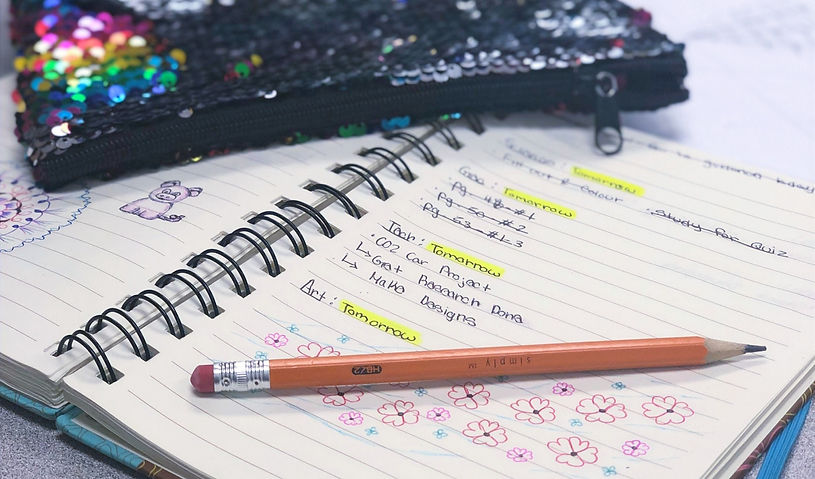 Tomorrow
Fill out & Colour
· Study for Quiz
Geo: Tomorrow
Pg 48 - #1
Pg 50 - #2
Pg 53 - #1-3
Tech: Tomorrow
· CO2 Car Project
↳ Get Research Done
↳ Make Designs
Art: Tomorrow
HB/2
simply ™